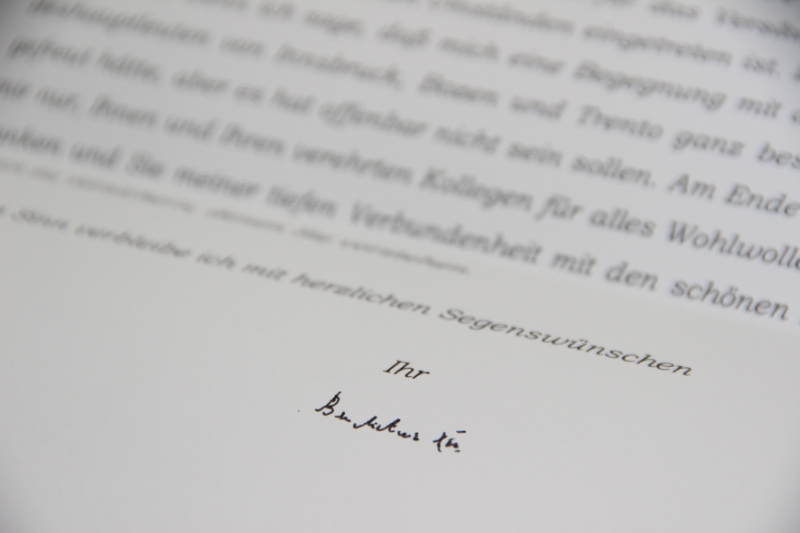 für das Verstä
Umständen eingetreten ist.
ich sage, daß mich eine Begegnung mit
Landeshauptleuten von Innsbruck, Bozen und Trento ganz bes
gefreut hätte, aber es hat offenbar nicht sein sollen. Am Ende
mir nur, Ihnen und Ihren verehrten Kollegen für alles Wohlwolle
anken und Sie meiner tiefen Verbundenheit mit den schönen
Sinn verbleibe ich mit herzlichen Segenswünschen
Ihr
Benedictus XVI.